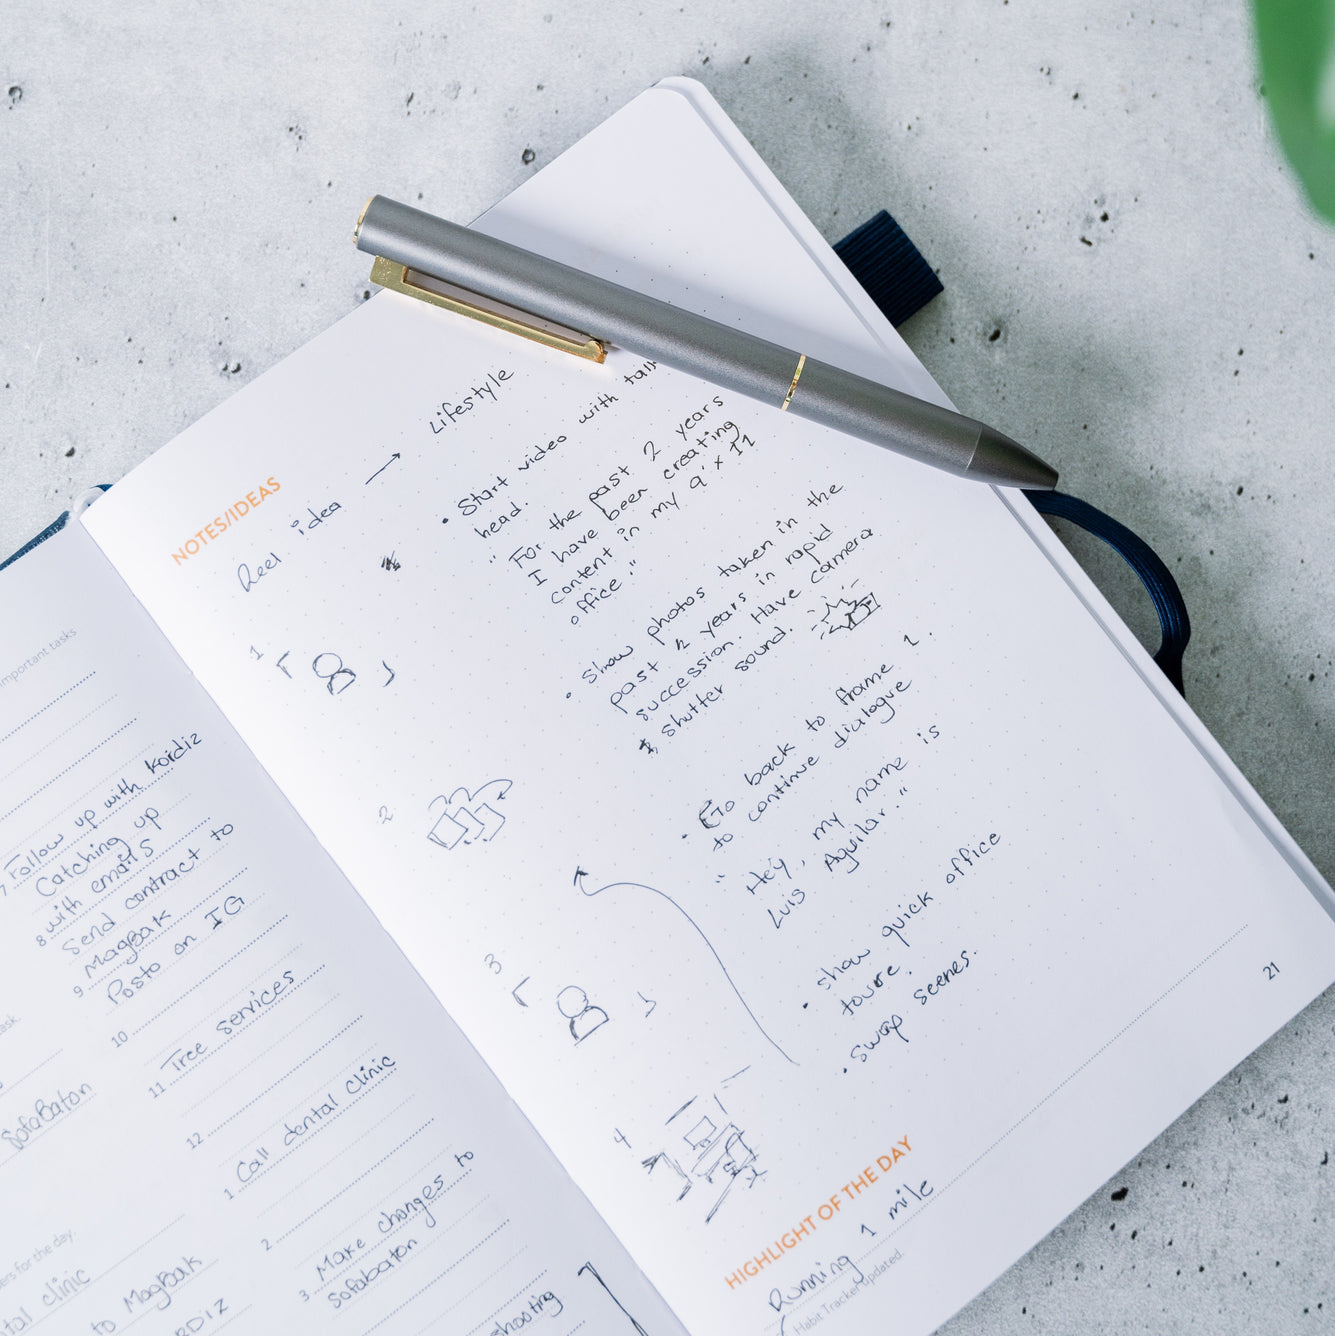 important tasks
7 Follow up with Kordiz
Catching up
8 with emails
Send contract to
MagBak
9 Posto on IG
10
11 Tree services
12
1 Call dental clinic
2
3 Make changes to
Sofabaton
shooting
task
SofaBaton
for the day.
clinic
to MagBak
NOTES/IDEAS
Reel idea → Lifestyle
1
• Start video with
head.
"For the past 2 years
I have been creating
content in my 9' x 11
office."
2
• Show photos taken in the
past 2 years in rapid
succession. Have camera
shutter sound.
3
• Go back to frame 1.
to continue dialogue
"Hey, my name is
Luis Aguilar."
4
• show quick office
toure.
• swap scenes.
21
HIGHLIGHT OF THE DAY
Running 1 mile
Habit Tracker updated.